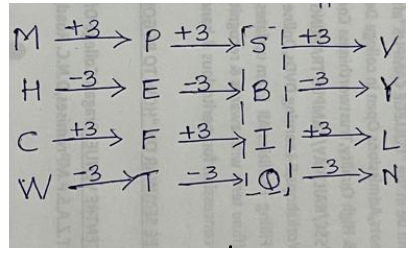 M +3 P +3 S +3 V
H -3 E -3 B -3 Y
C +3 F +3 I +3 L
W -3 T -3 Q -3 N